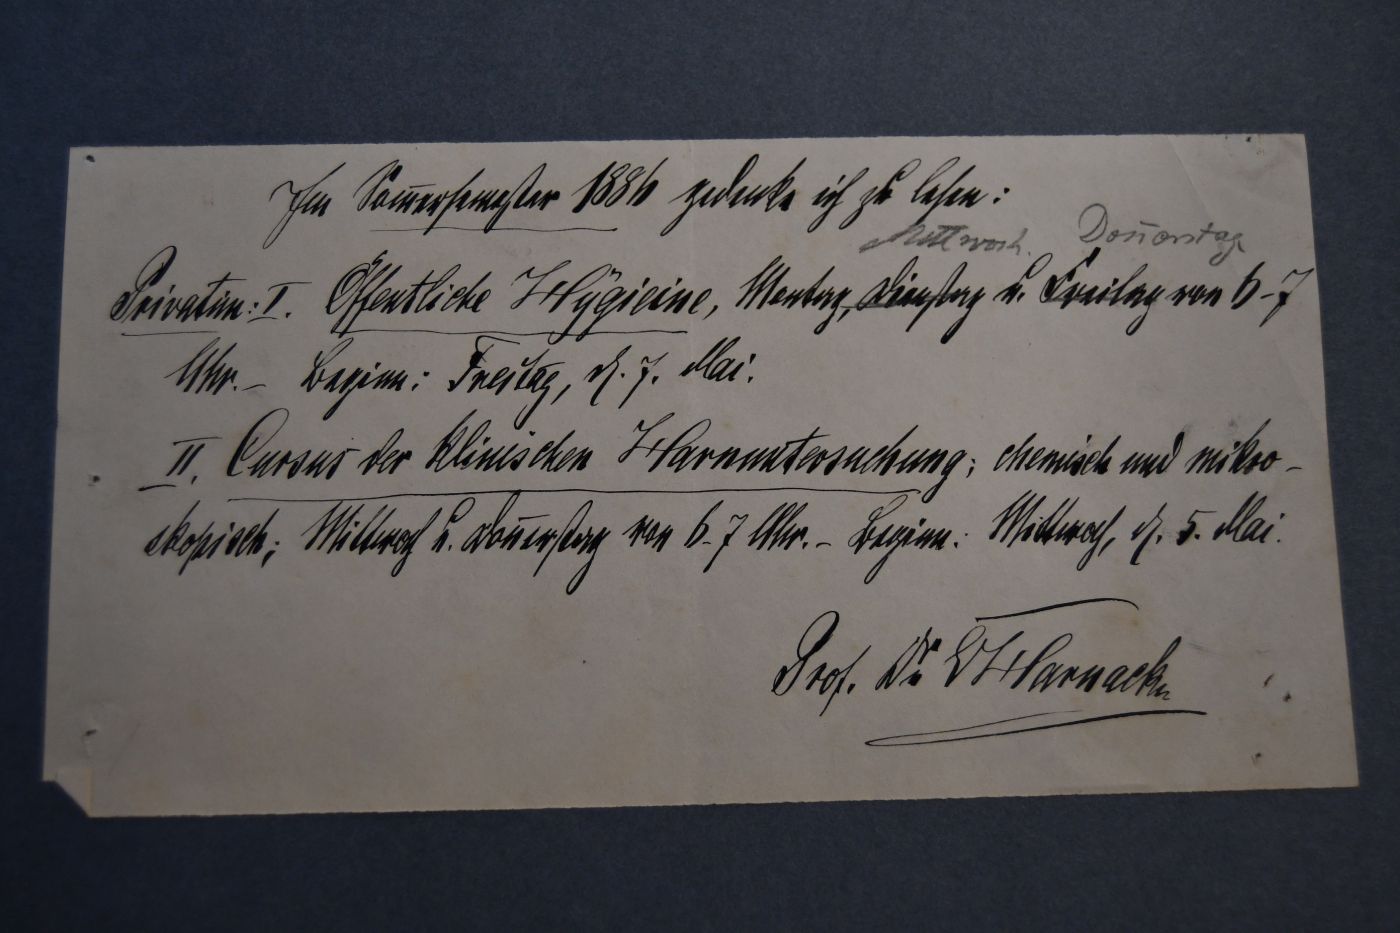 Im Sommersemester 1886 gedenke ich zu lesen:
Mittwoch. Donnerstag
Privatim: I. Öffentliche Hygieine, Montag, Dienstag u. Freitag von 6-7
Uhr. – Beginn: Freitag, d. 7. Mai.
II. Cursus der klinischen Harnuntersuchung; chemisch und mikro-
skopisch; Mittwoch u. Donnerstag von 6-7 Uhr. – Beginn: Mittwoch, d. 5. Mai.
Prof. Dr E Harnack